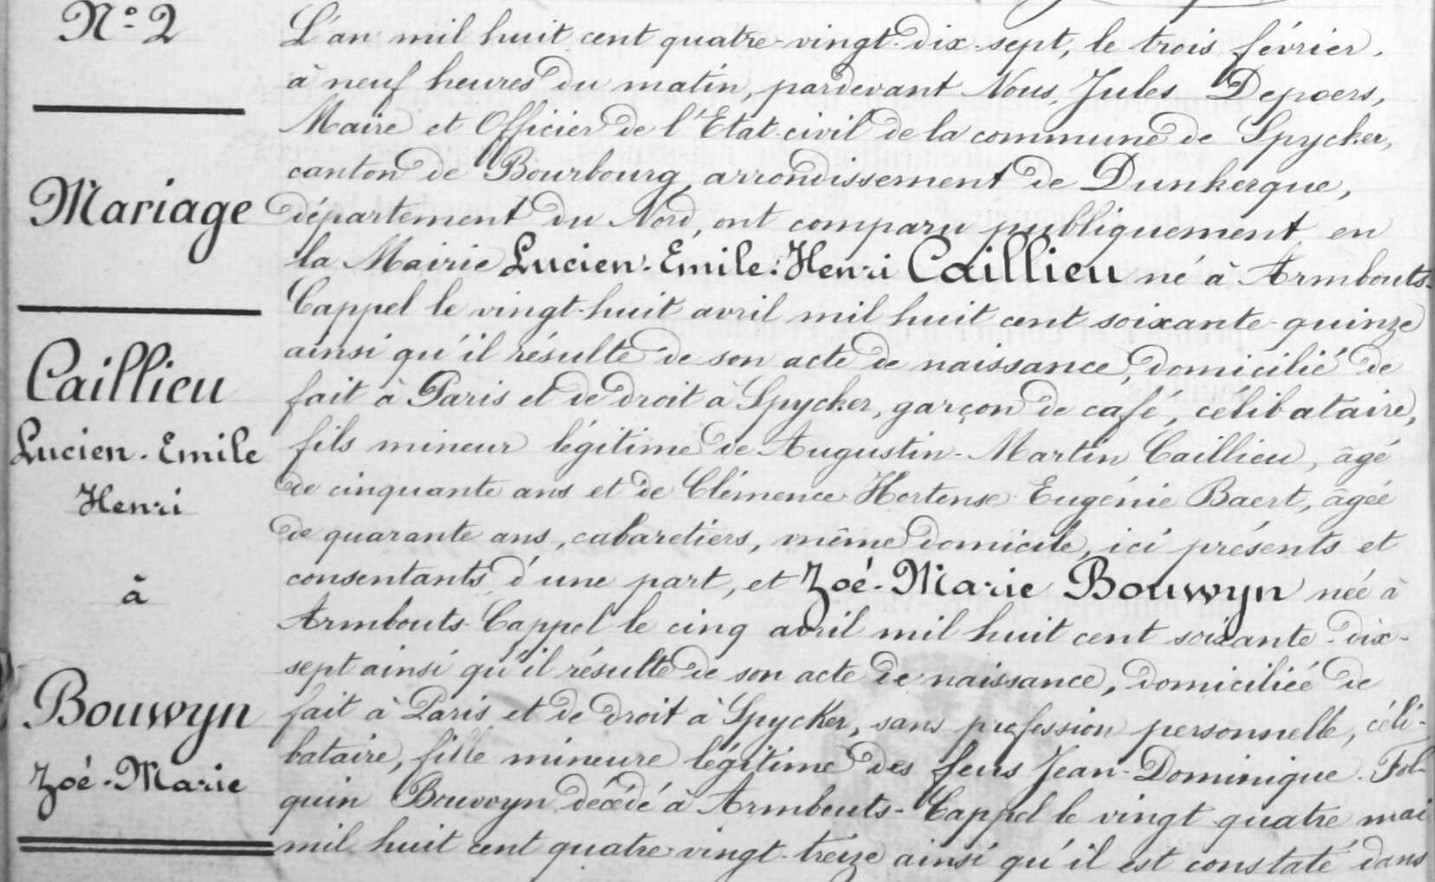 Nº 2
Mariage
Caillieu
Lucien-Emile
Henri
à
Bouwyn
Zoé-Marie
L'an mil huit cent quatre-vingt-dix-sept, le trois février,
à neuf heures du matin, pardevant Nous, Jules Depoers,
Maire et Officier de l'Etat-civil de la commune de Spycker,
canton de Bourbourg, arrondissement de Dunkerque,
département du Nord, ont comparu publiquement en
la Mairie Lucien-Emile-Henri Caillieu né à Armbouts-
Cappel le vingt-huit avril mil huit cent soixante-quinze
ainsi qu'il résulte de son acte de naissance, domicilié de
fait à Paris et de droit à Spycker, garçon de café, célibataire,
fils mineur légitime de Augustin-Martin Caillieu, âgé
de cinquante ans et de Clémence-Hortense-Eugénie Baert, âgée
de quarante ans, cabaretiers, même domicile, ici présents et
consentants d'une part, et Zoé-Marie Bouwyn née à
Armbouts-Cappel le cinq avril mil huit cent soixante-dix-
sept ainsi qu'il résulte de son acte de naissance, domiciliée de
fait à Paris et de droit à Spycker, sans profession personnelle, céli-
bataire, fille mineure légitime des feus Jean-Dominique-Fol-
quin Bouwyn décédé à Armbouts-Cappel le vingt quatre mai
mil huit cent quatre vingt-treize ainsi qu'il est constaté dans